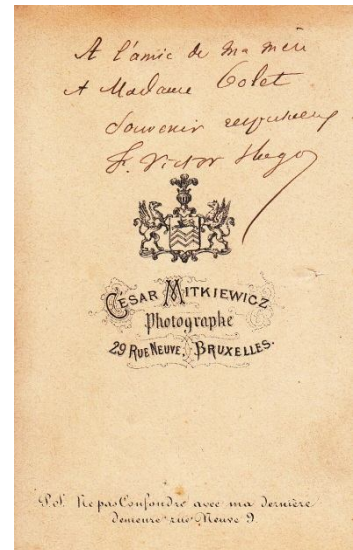 A l'amie de ma mère
A Madame Colet
Souvenir respectueux
F. Victor Hugo
CÉSAR MITKIEWICZ
Photographe
29 RUE NEUVE, BRUXELLES.
P.S. Ne pas Confondre avec ma dernière
demeure rue Neuve 9.